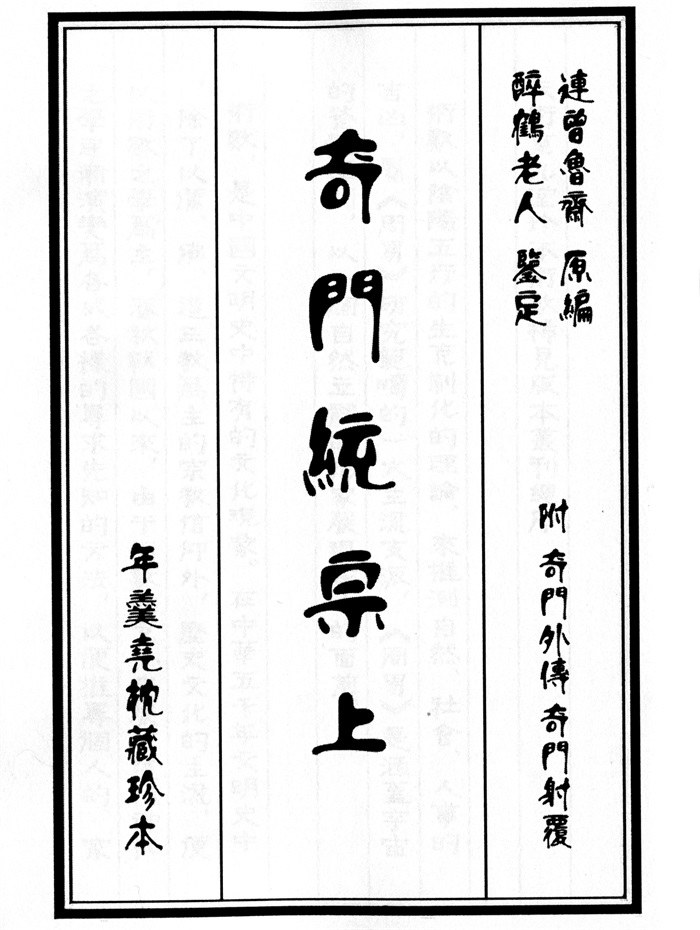 連曾魯齋 原編
醉鶴老人 鑒定
附 奇門外傳奇門射覆
奇門統宗上
年羹堯枕藏珍本